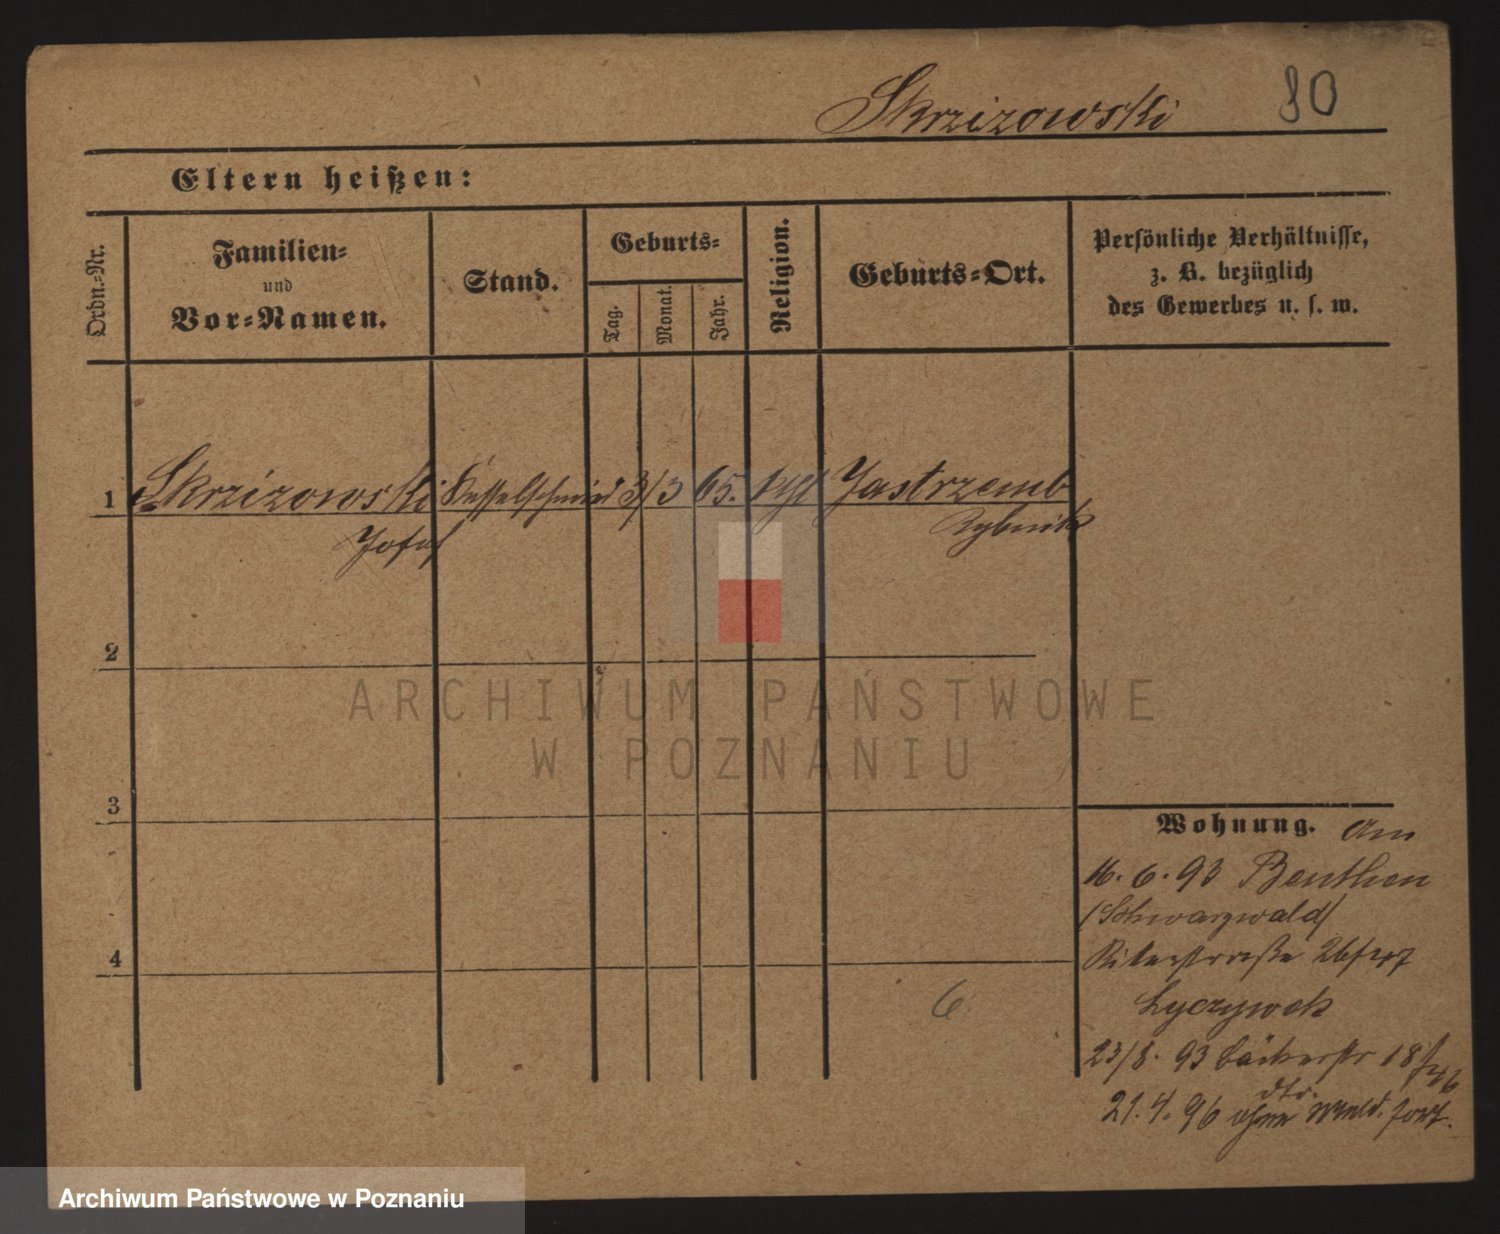 Skrzizowski 80
Eltern heißen:
Ordn.-Nr.
Familien-
und
Vor-Namen.
Stand.
Geburts-
Tag.
Monat.
Jahr.
Religion.
Geburts-Ort.
Persönliche Verhältnisse,
z. B. bezüglich
des Gewerbes u. s. w.
1 Skrzizowski Kesselschmied 3/3 65. Jastrzemb
Josef Rybnik
2
ARCHIWUM PAŃSTWOWE
W POZNANIU
3
Wohnung. Am
16. 6. 93 Beuthen
(Schwarzwald)
4
Ritterstraße 26
Lyczywek
6
23/8. 93 Bäckerstr 18
dto.
21. 4. 96 ohne Meld. fort.
Archiwum Państwowe w Poznaniu